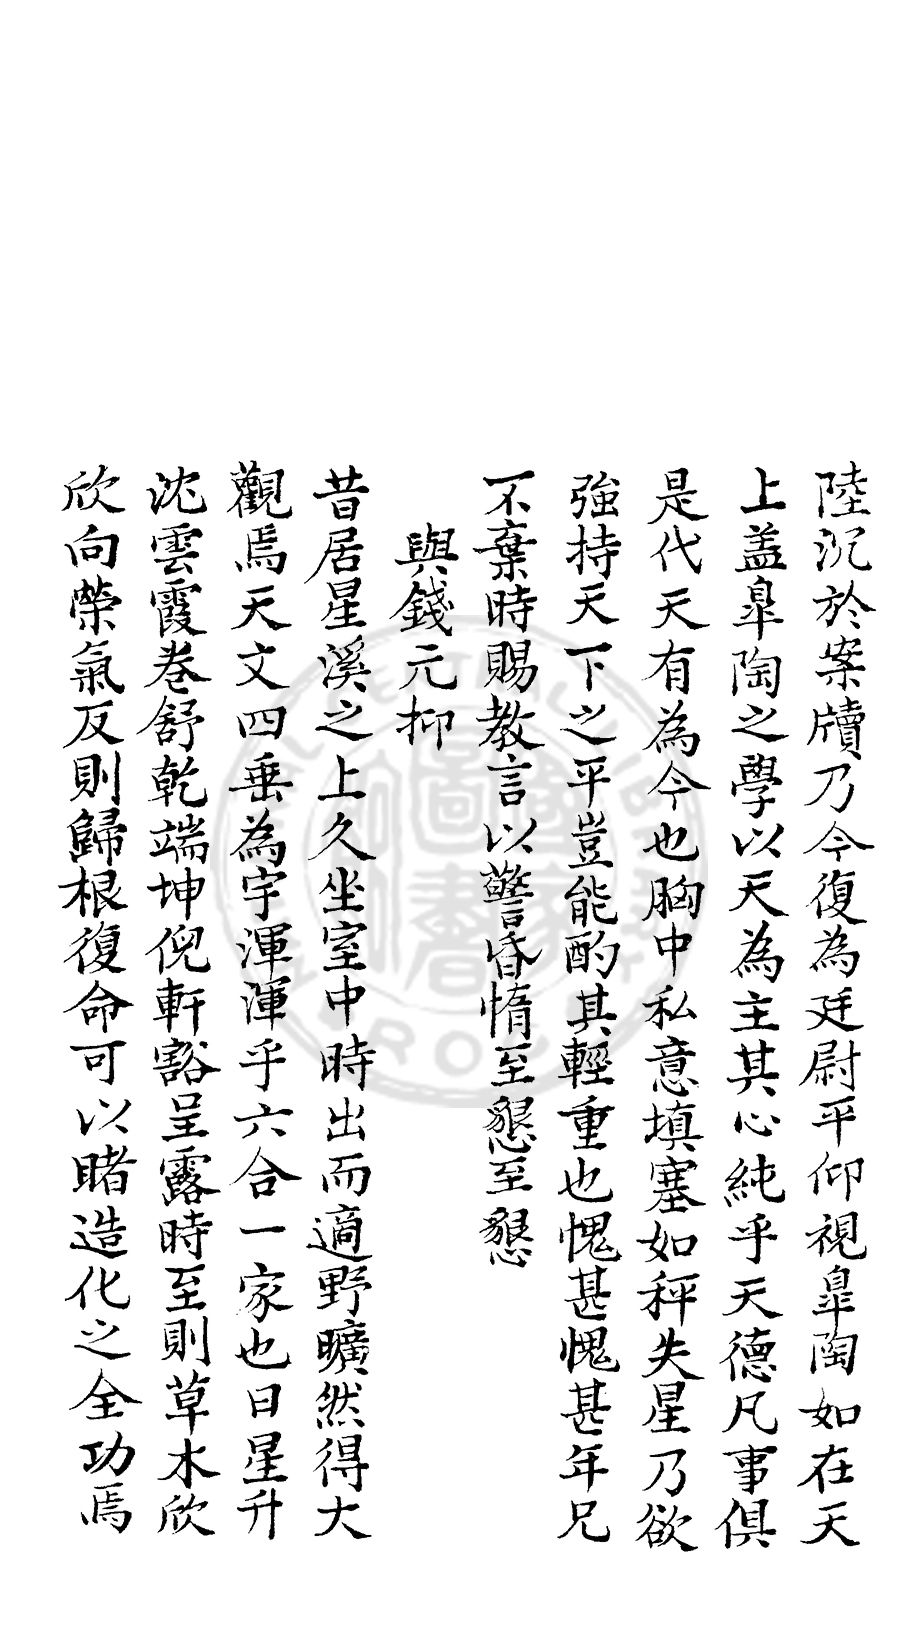 陸沉於案牘乃今復為廷尉平仰視臯陶如在天
上盖臯陶之學以天為主其心純乎天德凡事俱
是代天有為今也胸中私意填塞如秤失星乃欲
強持天下之平豈能酌其輕重也愧甚愧甚年兄
不棄時賜教言以警昏惰至懇至懇
與錢元抑
昔居星溪之上久坐室中時出而適野曠然得大
觀焉天文四垂為宇渾渾乎六合一家也日星升
沈雲霞卷舒乾端坤倪軒豁呈露時至則草木欣
欣向榮氣反則歸根復命可以睹造化之全功焉